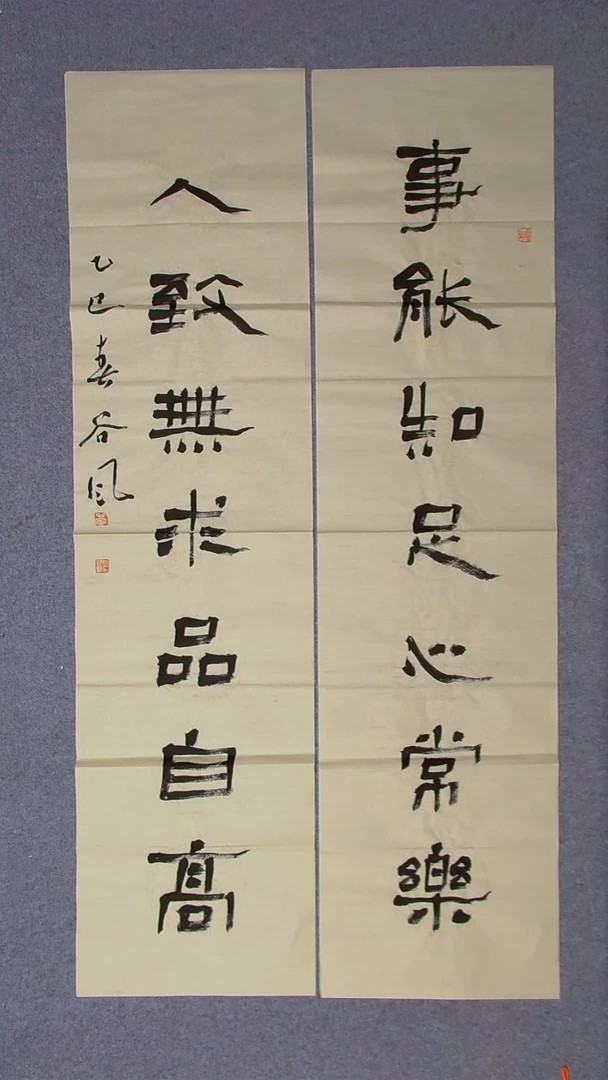 事能知足心常樂
人致無求品自高
乙巳春谷风